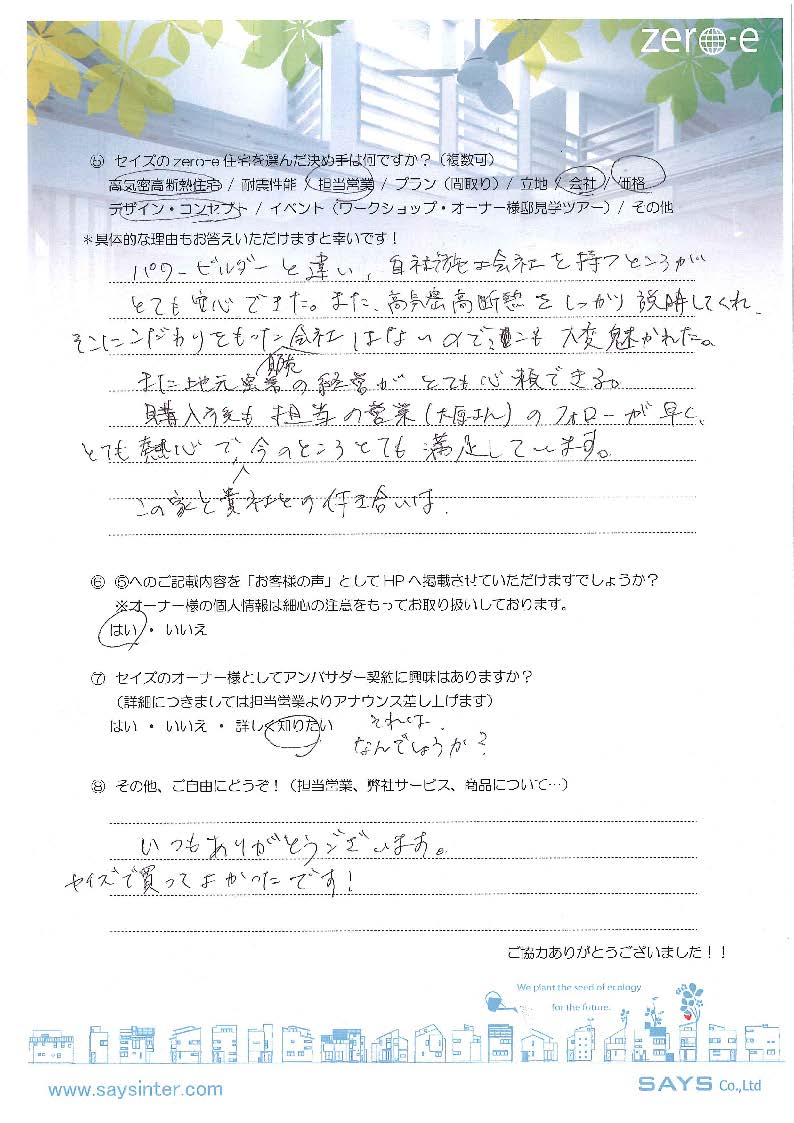 zero-e
⑤ セイズのzero-e住宅を選んだ決め手は何ですか？（複数可）
高気密高断熱住宅 / 耐震性能 / 担当営業 / プラン（間取り）/ 立地 / 会社 / 価格
デザイン・コンセプト / イベント（ワークショップ・オーナー様邸見学ツアー）/ その他
＊具体的な理由もお答えいただけますと幸いです！
パワービルダーと違い、自社施工会社を持つところが
とても安心できた。また、高気密高断熱をしっかり説明してくれ、
そこにこだわりをもった会社はないのでそこも大変魅かれた。
また地元の経営がとても心頼できる。
購入後も担当の営業(大房さん)のフォローが早く、
とても熱心で今のところとても満足しています。
この家と貴社との付き合いは、
⑥ ⑤へのご記載内容を「お客様の声」としてHPへ掲載させていただけますでしょうか？
※オーナー様の個人情報は細心の注意をもってお取り扱いしております。
はい ・ いいえ
⑦ セイズのオーナー様としてアンバサダー契約に興味はありますか？
（詳細につきましては担当営業よりアナウンス差し上げます）
はい ・ いいえ ・ 詳しく知りたい それは、
なんでしょうか？
⑧ その他、ご自由にどうぞ！（担当営業、弊社サービス、商品について…）
いつもありがとうございます。
セイズで買ってよかったです！
ご協力ありがとうございました！！
We plant the seed of ecology
for the future.
www.saysinter.com
SAYS Co.,Ltd